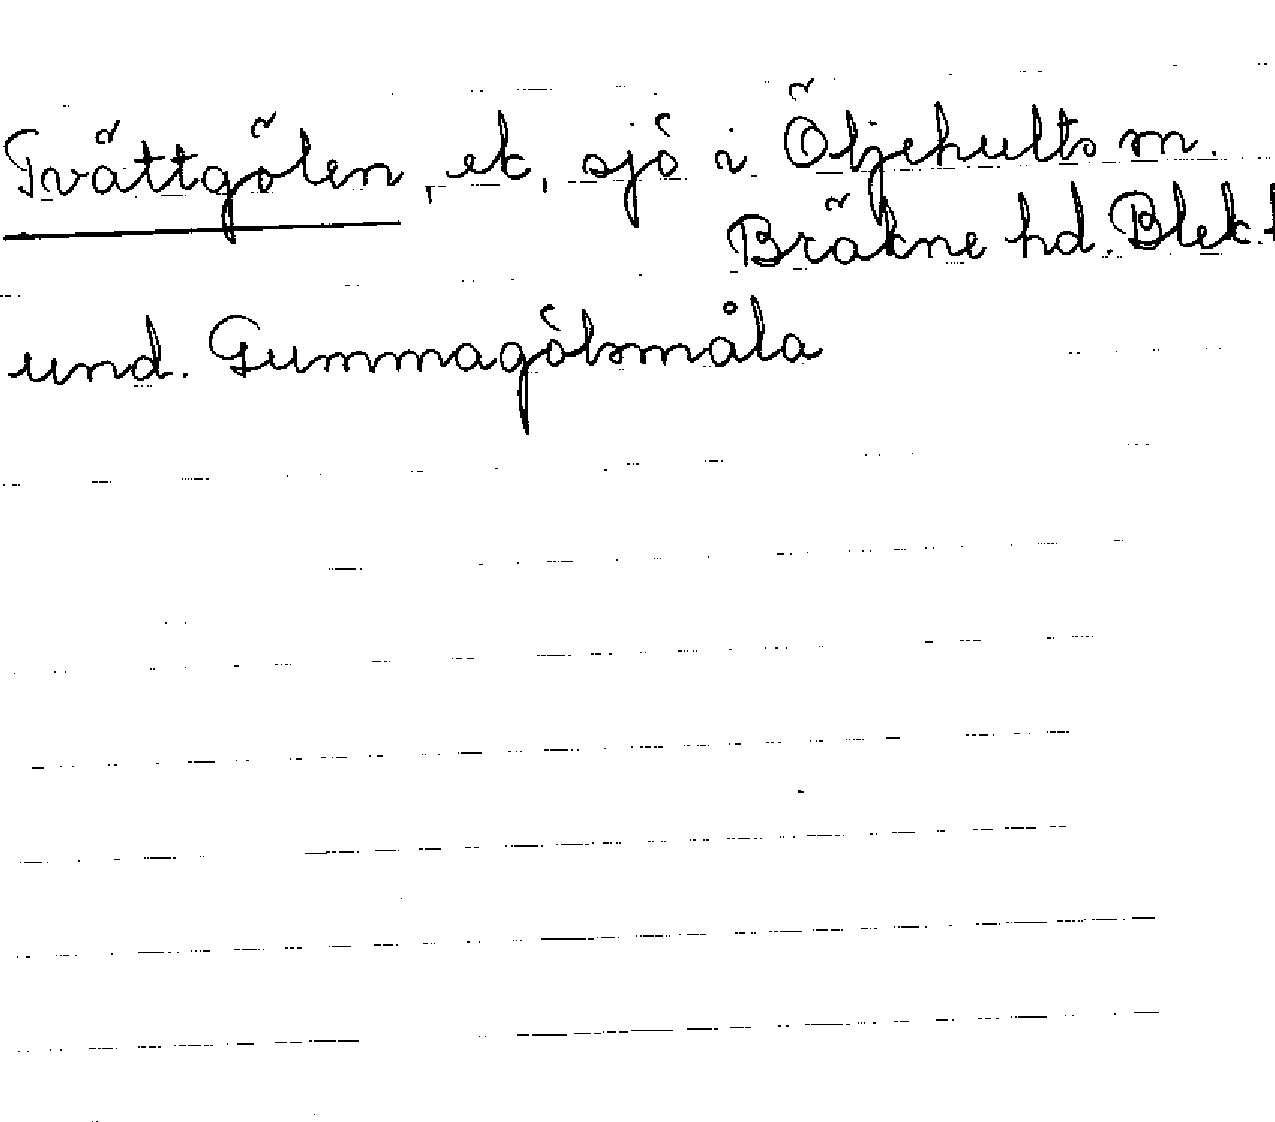 Tvättgölen, ek, sjö i Öljehults sn.
Bräkne hd. Blek. l
und. Gummagölsmåla